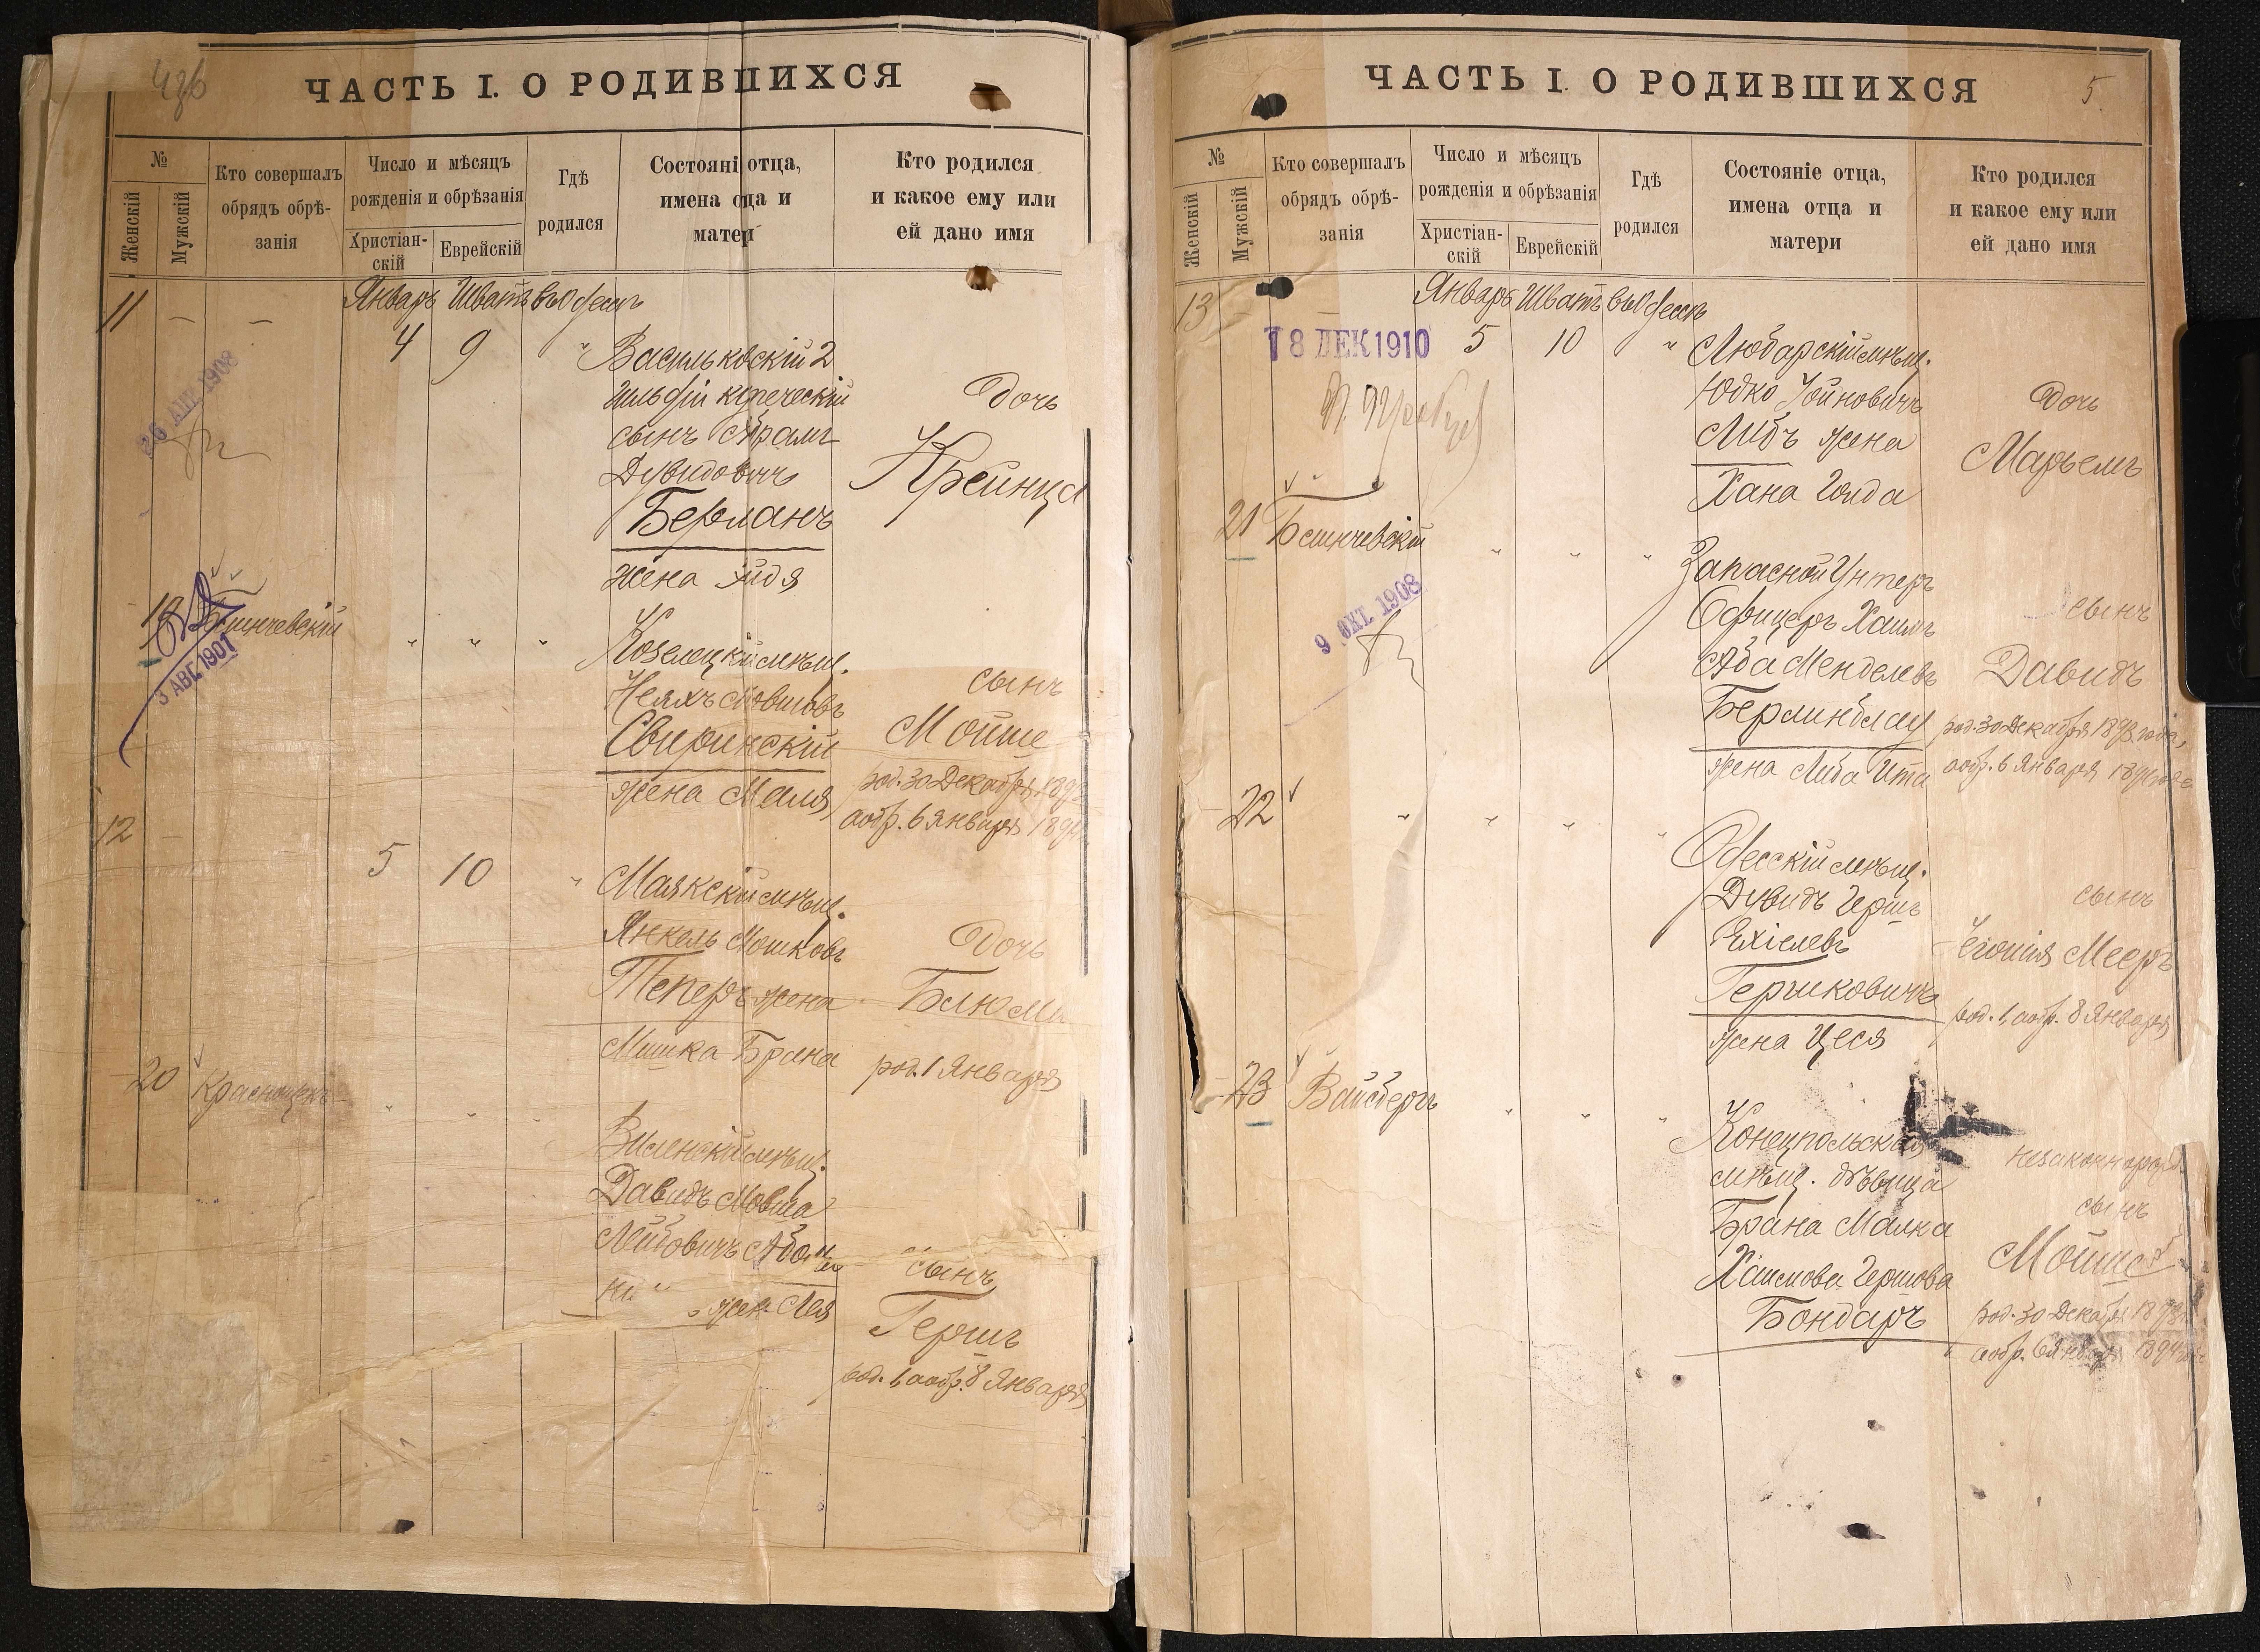 ЧАСТЬ I. О РОДИВШИХСЯ
№
Женскій
Мужскій
Кто совершалъ
обрядъ обрѣ-
занія
Число и мѣсяцъ
рожденія и обрѣзанія
Христіан-
скій
Еврейскій
Гдѣ
родился
Состояніе отца,
имена отца и
матери
Кто родился
и какое ему или
ей дано имя
11 — — Январь Шватъ въ Одессѣ
4 9 " Васильковскій 2
гильдіи купеческій
сынъ Абрамъ
Дувидовичъ
Берманъ
жена Эйдя
Дочь
Крейнца
3 АВГ 1907
" " " Козелецкій мѣщ.
Мовшовъ
Свиринскій
жена Маля
сынъ
Мойше
род. 30 Декабря 1893
а обр. 6 Января 1894
12 —
5 10 " Маякскій мѣщ.
Янкель Мошковъ
Теперъ жена
Брана
Дочь
Блюма
род. 1 Января
20 Краснощекъ " "
Виленскій мѣщ.
Давидъ Мовша
Лейбовичъ
жен. Лея
сынъ
Гершъ
род. 1, а обр. 8 Января
ЧАСТЬ I. О РОДИВШИХСЯ
5.
№
Женскій
Мужскій
Кто совершалъ
обрядъ обрѣ-
занія
Число и мѣсяцъ
рожденія и обрѣзанія
Христіан-
скій
Еврейскій
Гдѣ
родился
Состояніе отца,
имена отца и
матери
Кто родился
и какое ему или
ей дано имя
13 — — Январь Шватъ въ Одессѣ
18 ДЕК 1910 5 10 " Любарскій мѣщ.
Юдко Іойновичъ
Либъ жена
Хана Голда
Дочь
Марьемъ
21 " " " Запасной Унтеръ
Офицеръ Хаимъ
Аба Менделевъ
Берлинблау
жена Либа Ита
9 ОКТ. 1908
сынъ
Давидъ
род. 30 Декабря 1893 года,
а обр. 6 Января 1894 года
22 " " " " Одесскій мѣщ.
Дувидъ Гершъ
Ехіелевъ
Гершковичъ
жена Цеся
сынъ
Мееръ
род. 1, а обр. 8 Января
23 Вайсберъ " " " Конецпольская
мѣщ. дѣвица
Брана Малка
Хаимова Гершова
Бондаръ
незаконнорожд.
сынъ
Мойше
род. 30 Декабря 1893 г.
а обр. 6 Января 1894